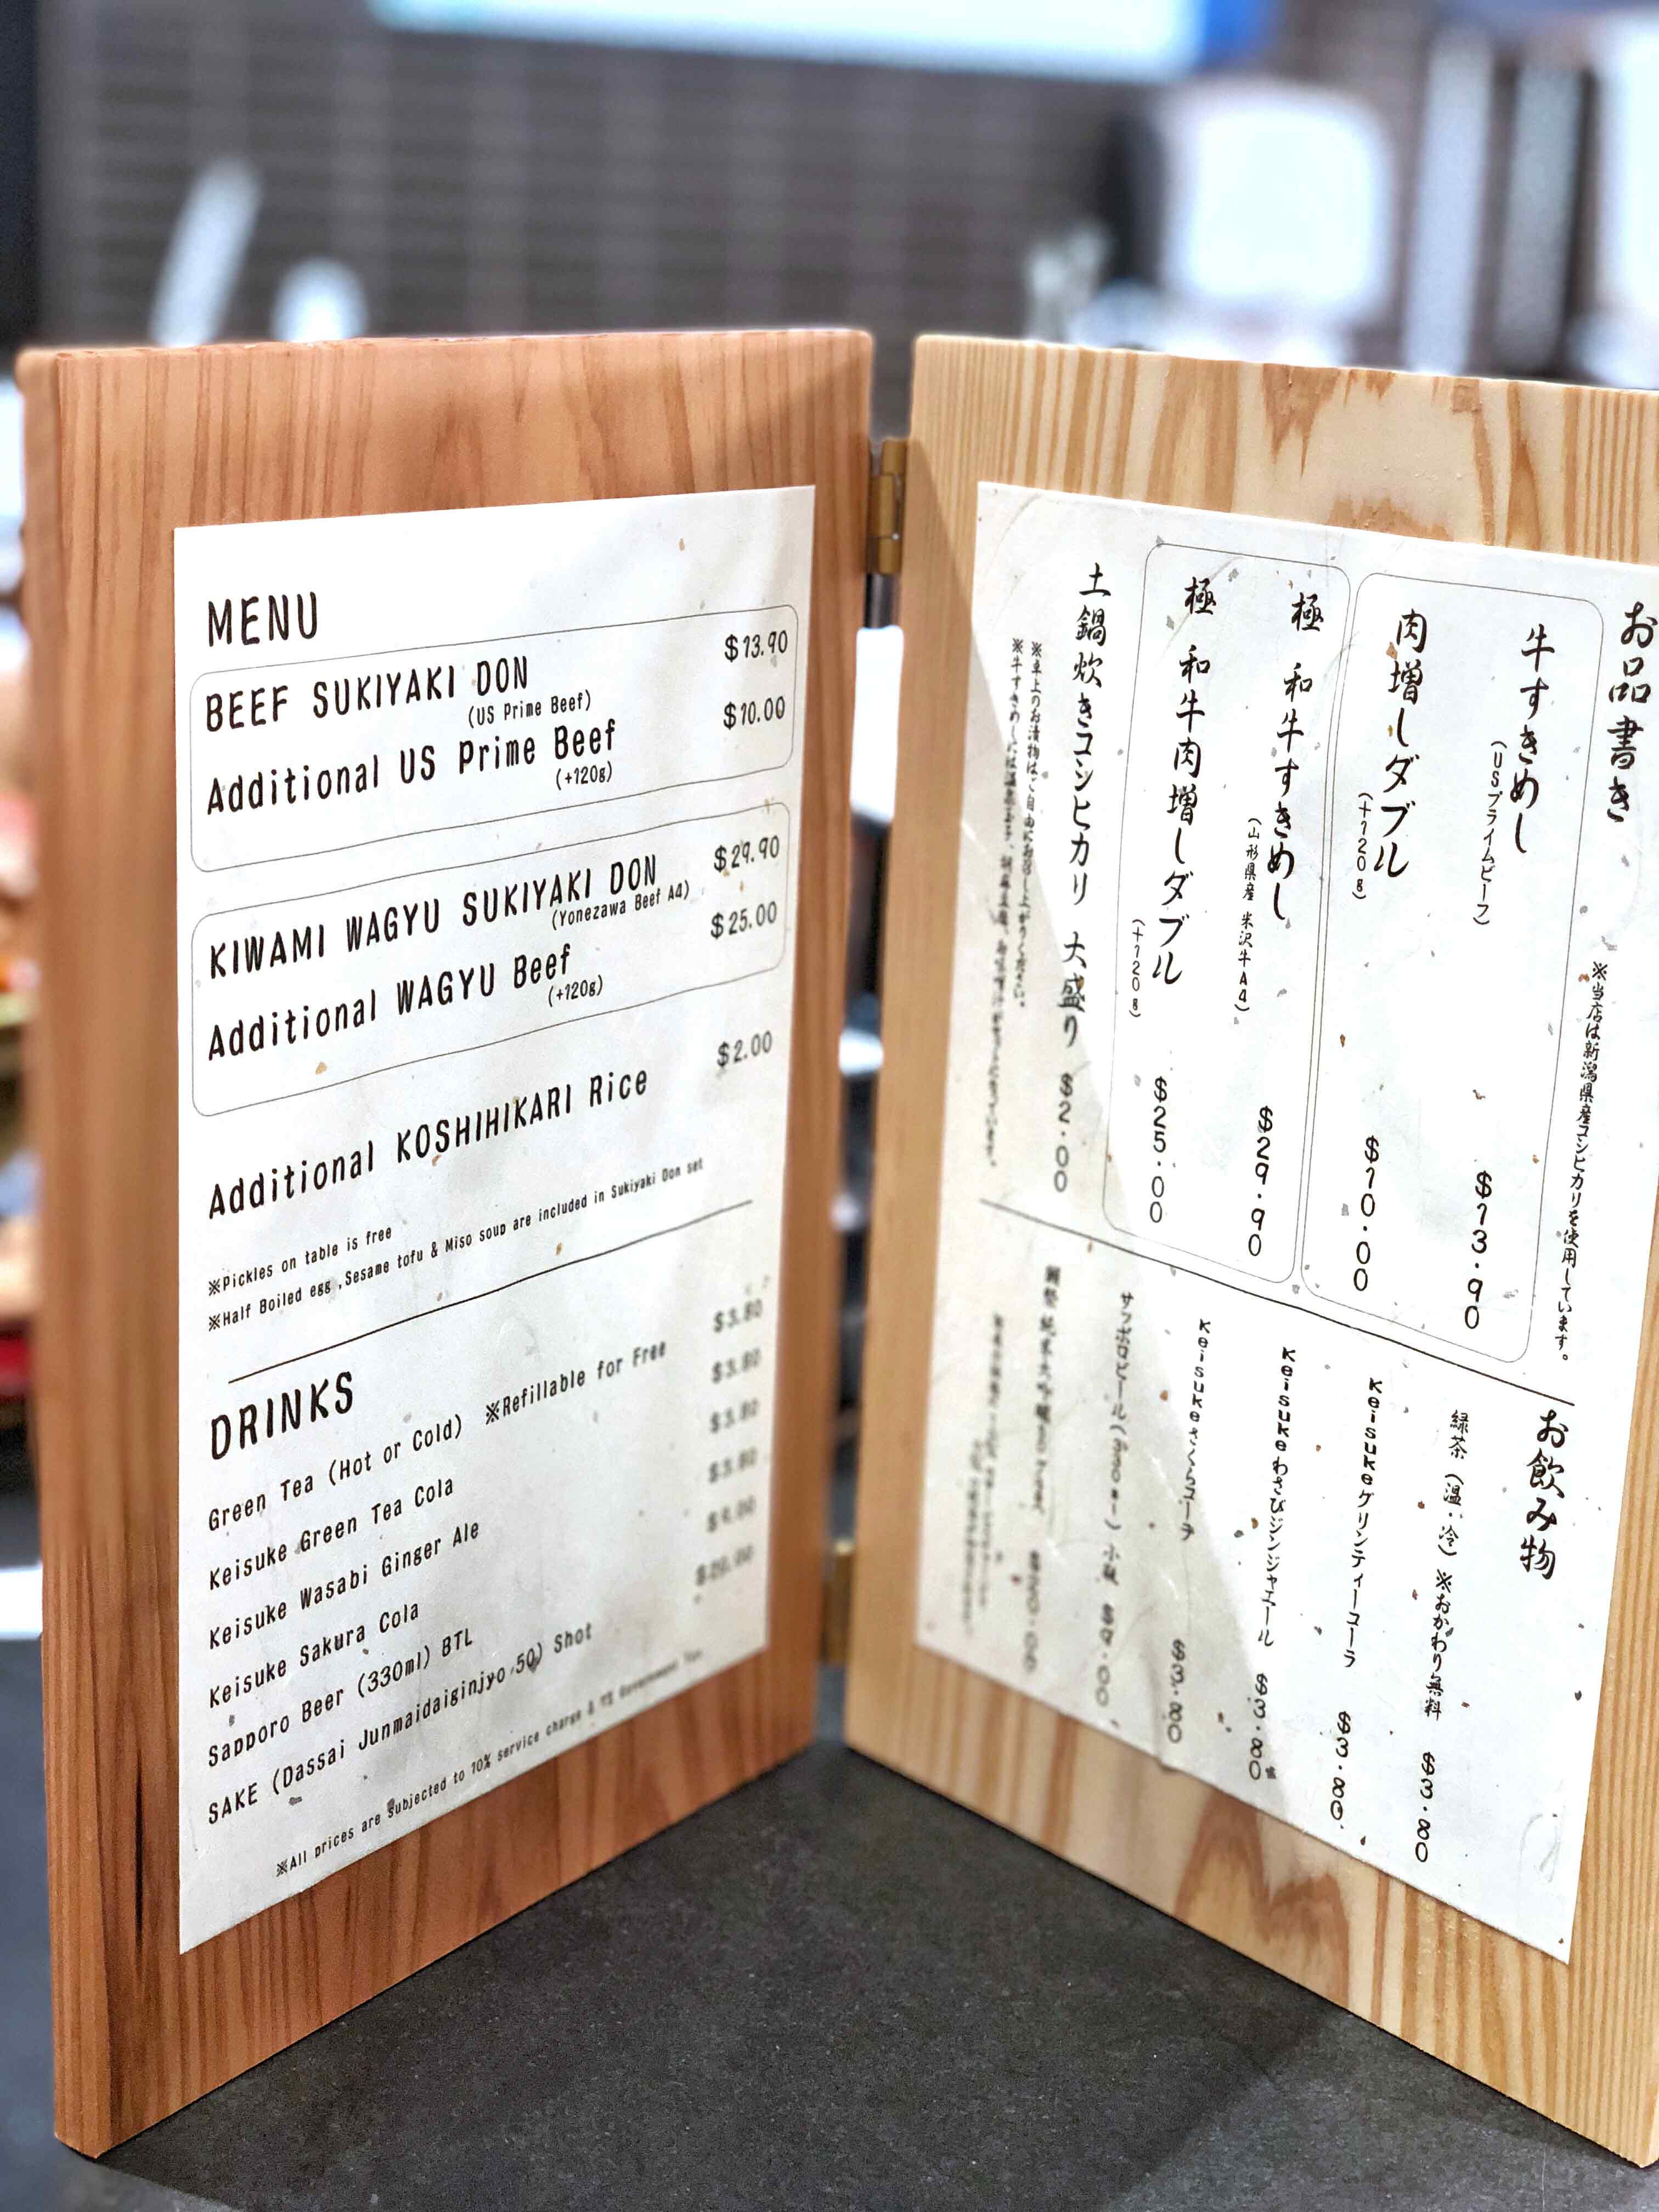 MENU
BEEF SUKIYAKI DON $13.90
(US Prime Beef)
Additional US Prime Beef $10.00
(+120g)
KIWAMI WAGYU SUKIYAKI DON $29.90
(Yonezawa Beef A4)
Additional WAGYU Beef $25.00
(+120g)
Additional KOSHIHIKARI Rice $2.00
※Pickles on table is free
※Half Boiled egg ,Sesame tofu & Miso soup are included in Sukiyaki Don set
DRINKS
Green Tea (Hot or Cold) ※Refillable for Free $3.80
Keisuke Green Tea Cola $3.80
Keisuke Wasabi Ginger Ale $3.80
Keisuke Sakura Cola $3.80
Sapporo Beer (330ml) BTL $9.00
SAKE (Dassai Junmaidaiginjyo 50) Shot $20.00
※All prices are Subjected to 10% service charge & 7% Government Tax
お品書き
※当店は新潟県産コシヒカリを使用しています。
牛すきめし $13.90
(USプライムビーフ)
肉増しダブル $10.00
(+120g)
極 和牛すきめし $29.90
(山形県産 米沢牛A4)
極 和牛肉増しダブル $25.00
(+120g)
土鍋炊きコシヒカリ 大盛り $2.00
※卓上のお漬物はご自由にお召し上がりください。
※牛すきめしには
お飲み物
緑茶 (温・冷) ※おかわり無料 $3.80
Keisukeグリンティーコーラ $3.80
Keisukeわさびジンジャエール $3.80
Keisukeさくらコーラ $3.80
サッポロビール(330ml) 小瓶 $9.00
獺祭 純米大吟醸50 $20.00